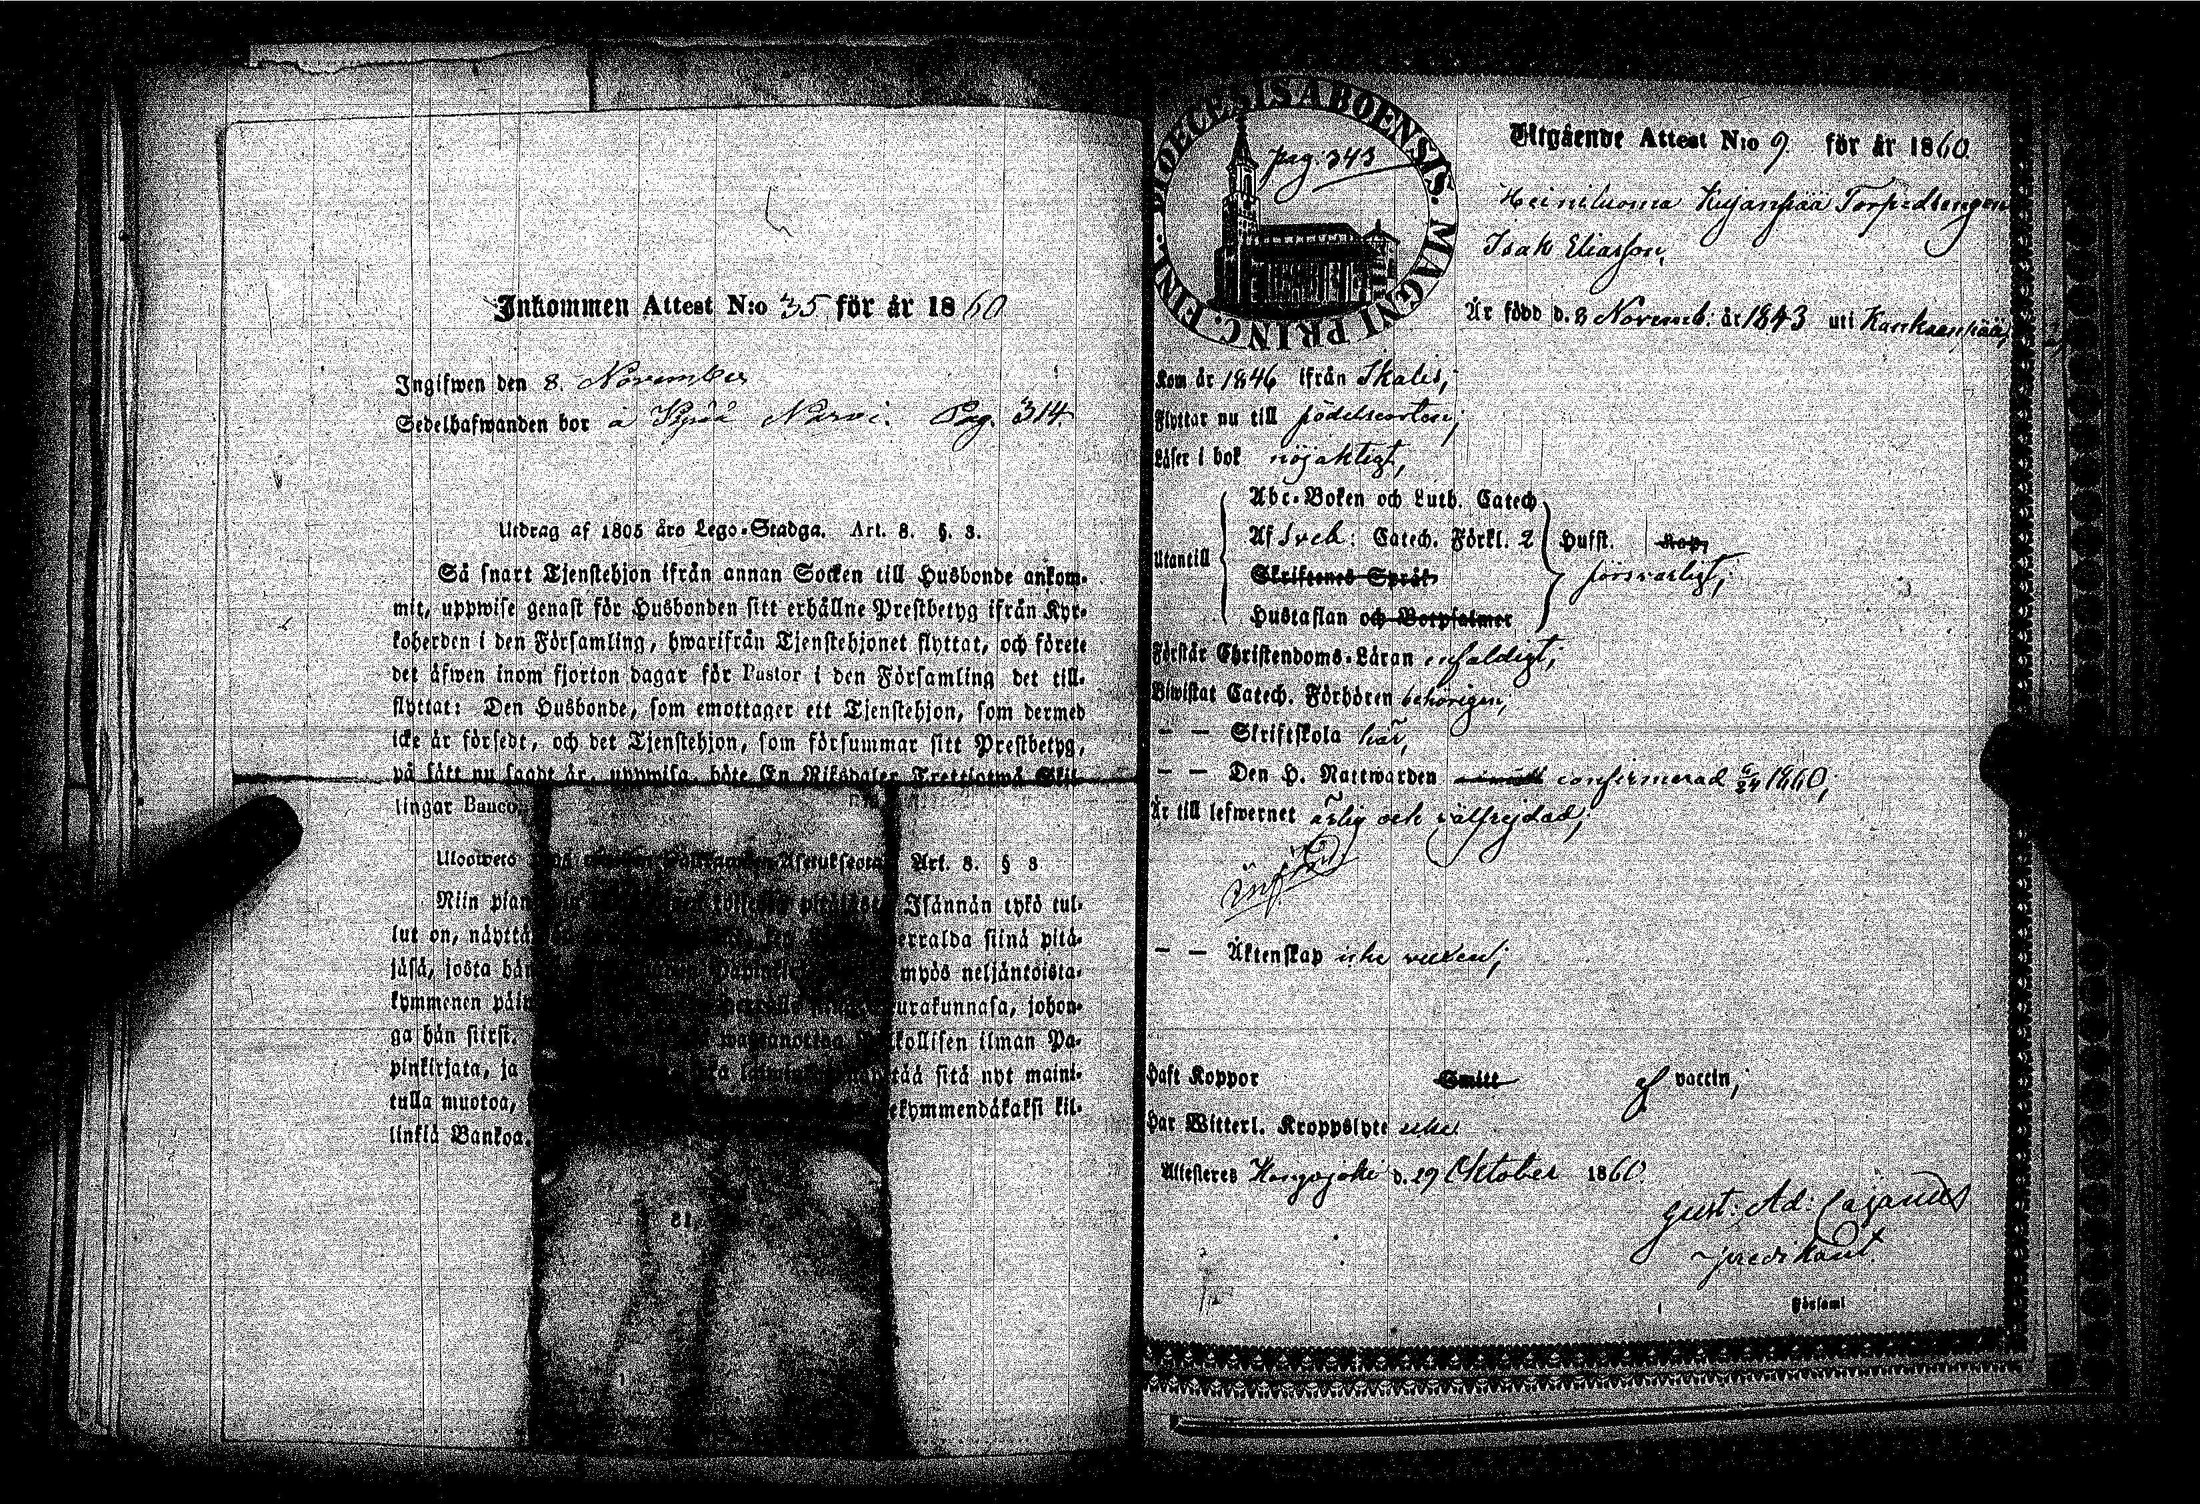 Inkommen Attest N:o 35 för år 1860
Ingifwen den 8. November
Sedelhafwanden bor å Kyrö Narvi. Pag. 314.
Utdrag af 1805 års Lego-Stadga. Art. 8. §. 3.
Så snart Tjenstehjon ifrån annan Socken till Husbonde ankom-
mit, uppwise genast för Husbonden sitt erhållne Prestbetyg ifrån Kyr-
koherden i den Församling, hwarifrån Tjenstehjonet flyttat, och förete
det äfwen inom fjorton dagar för Pastor i den Församling det till-
flyttat: Den Husbonde, som emottager ett Tjenstehjon, som dermed
icke är försedt, och det Tjenstehjon, som försummar sitt Prestbetyg,
på sätt nu sagdt är, uppwisa, böte En Riksdaler Trettiotwå Skil-
lingar Banco.
Ulosweto Art. 8. § 3
Niin pian Isännän tykö tul-
lut on, näyttä erralda siinä pitä-
jäsä, josta hän myös neljäntoista-
kymmenen päiw urakunnasa, johon-
ga hän siirst. kollisen ilman Pa-
pinkirjata, ja tää sitä nyt maini-
tulla muotoa, ekymmendäkaksi kil-
linkiä Bankoa.
DIOECESIS ABOENSIS. MAGNI PRINC. FINL.
pag. 343
Utgående Attest N:o 9. för år 1860.
Heiniluoma Kujanpää Torpedrengen
Isak Eliasson,
Är född d. 8 Novemb: år 1843 uti Kankaanpää,
Kom år 1846 ifrån Ikalis;
Flyttar nu till födelseorten;
Läser i bok nöjaktigt,
Abc-Boken och Luth. Catech
Utantill
Af Sveb: Catech. Förkl. 2 Hufst.
Skriftenes Språk
försvarligt,
Hustaflan och Botpsalmer
Förstår Christendoms-Läran enfaldigt;
Biwistat Catech. Förhören behörigen,
— — Skriftskola här,
— — Den H. Nattwarden confirmerad 6/24 1860;
Är till lefwernet ärlig och välfrejdad;
Införd
— — Äktenskap icke vexen;
Haft Koppor Smitt af vaccin,
Har Witterl. Kroppslyte icke.
Attesteres Hongojoki d. 29 Oktober 1860.
Gust: Ad: Cajanus
predikant.
Församl